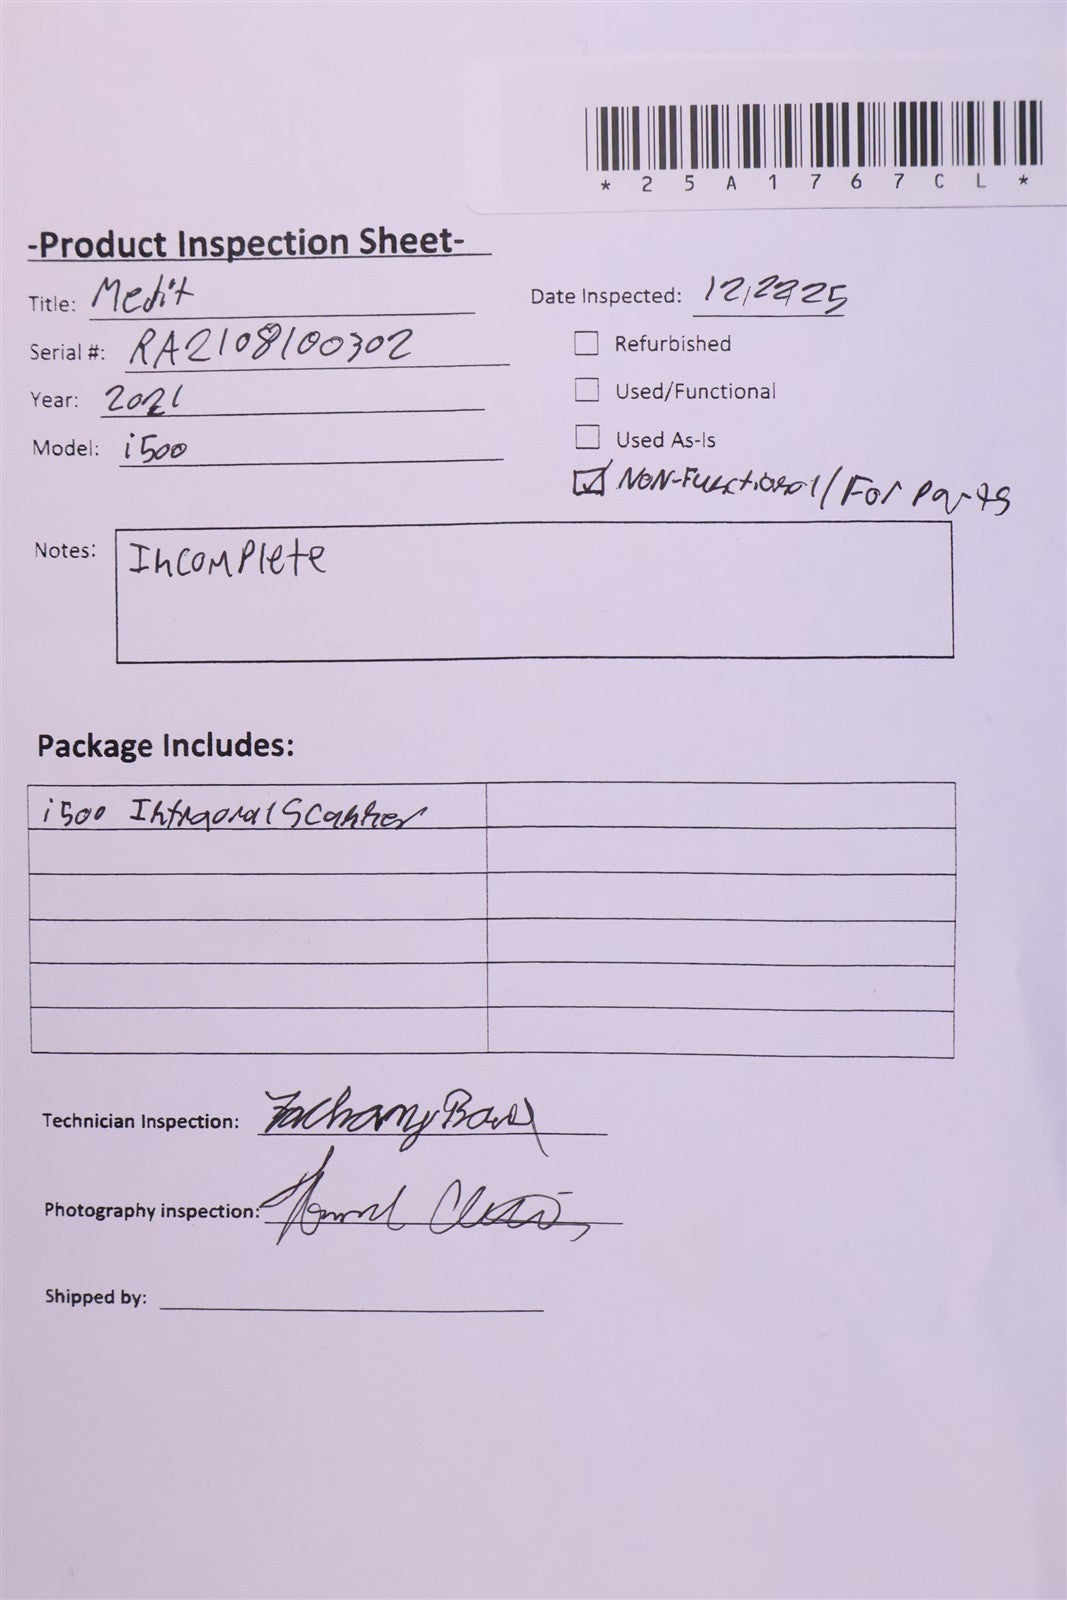 *25A1767CL*
-Product Inspection Sheet-
Title: Medit
Date Inspected: 12/2225
Serial #: RA2108100302
Refurbished
Year: 2021
Used/Functional
Model: i500
Used As-Is
NON-Functional/For parts
Notes: Incomplete
Package Includes:
i500 Intraoral Scanner
Technician Inspection: Zachary
Photography inspection:
Shipped by: